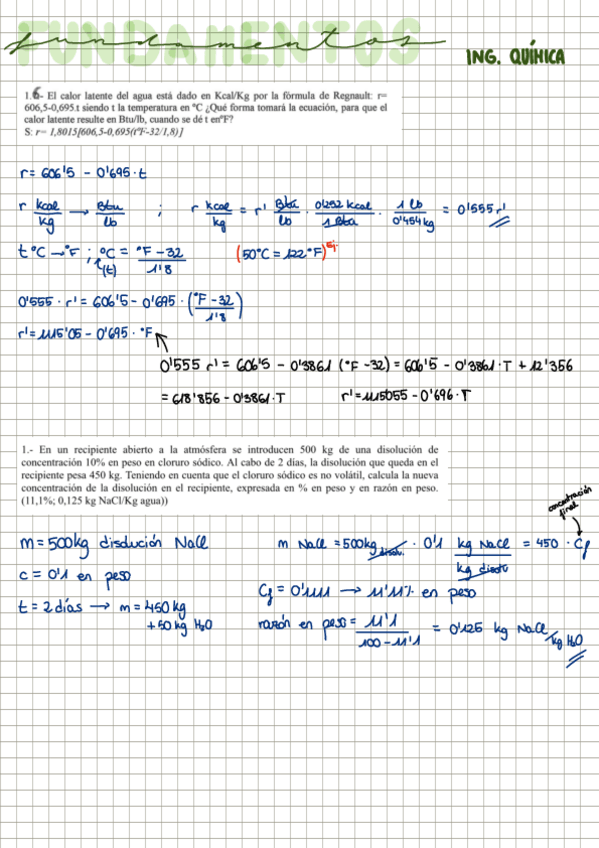 FUNDAMENTOS
fundamentos
ING. QUÍMICA
1.6- El calor latente del agua está dado en Kcal/Kg por la fórmula de Regnault: r=
606,5-0,695.t siendo t la temperatura en ºC ¿Qué forma tomará la ecuación, para que el
calor latente resulte en Btu/lb, cuando se dé t enºF?
S: r= 1,8015[606,5-0,695(tºF-32/1,8)]
r = 606'5 - 0'695 · t
r kcal/kg → Btu/lb ; r kcal/kg = r' Btu/lb · 0'252 kcal/1 Btu · 1 lb/0'454 kg = 0'555 r'
t ºC → ºF ; ºC = ºF - 32/1'8 (50ºC = 122 ºF) ej.
(t)
0'555 · r' = 606'5 - 0'695 · (ºF - 32/1'8)
r' = 1115'05 - 0'695 · ºF
0'555 r' = 606'5 - 0'3861 (ºF - 32) = 606'5 - 0'3861 · T + 12'356
= 618'856 - 0'3861 · T r' = 1115055 - 0'696 · T
1.- En un recipiente abierto a la atmósfera se introducen 500 kg de una disolución de
concentración 10% en peso en cloruro sódico. Al cabo de 2 días, la disolución que queda en el
recipiente pesa 450 kg. Teniendo en cuenta que el cloruro sódico es no volátil, calcula la nueva
concentración de la disolución en el recipiente, expresada en % en peso y en razón en peso.
(11,1%; 0,125 kg NaCl/Kg agua))
concentración
final
m = 500kg disolución NaCl m NaCl = 500kg disolu. · 0'1 kg NaCl/kg disolu = 450 · Cf
c = 0'1 en peso Cf = 0'1111 → 11'11% en peso
t = 2 días → m = 450 kg
+50 kg H2O razón en peso = 11'1/100 - 11'1 = 0'125 kg NaCl/kg H2O